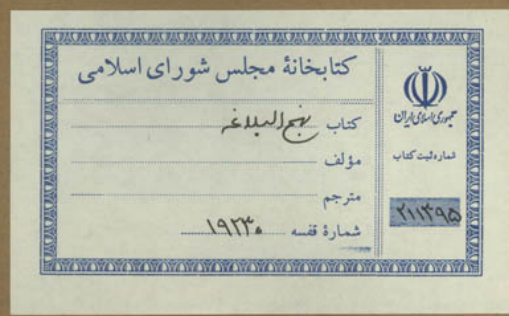 کتابخانهٔ مجلس شورای اسلامی
کتاب نهج البلاغه
مؤلف
مترجم
شمارهٔ قفسه ۱۹۲۳۰
جمهوری اسلامی ایران
شماره ثبت کتاب
۲۱۱۴۹۵